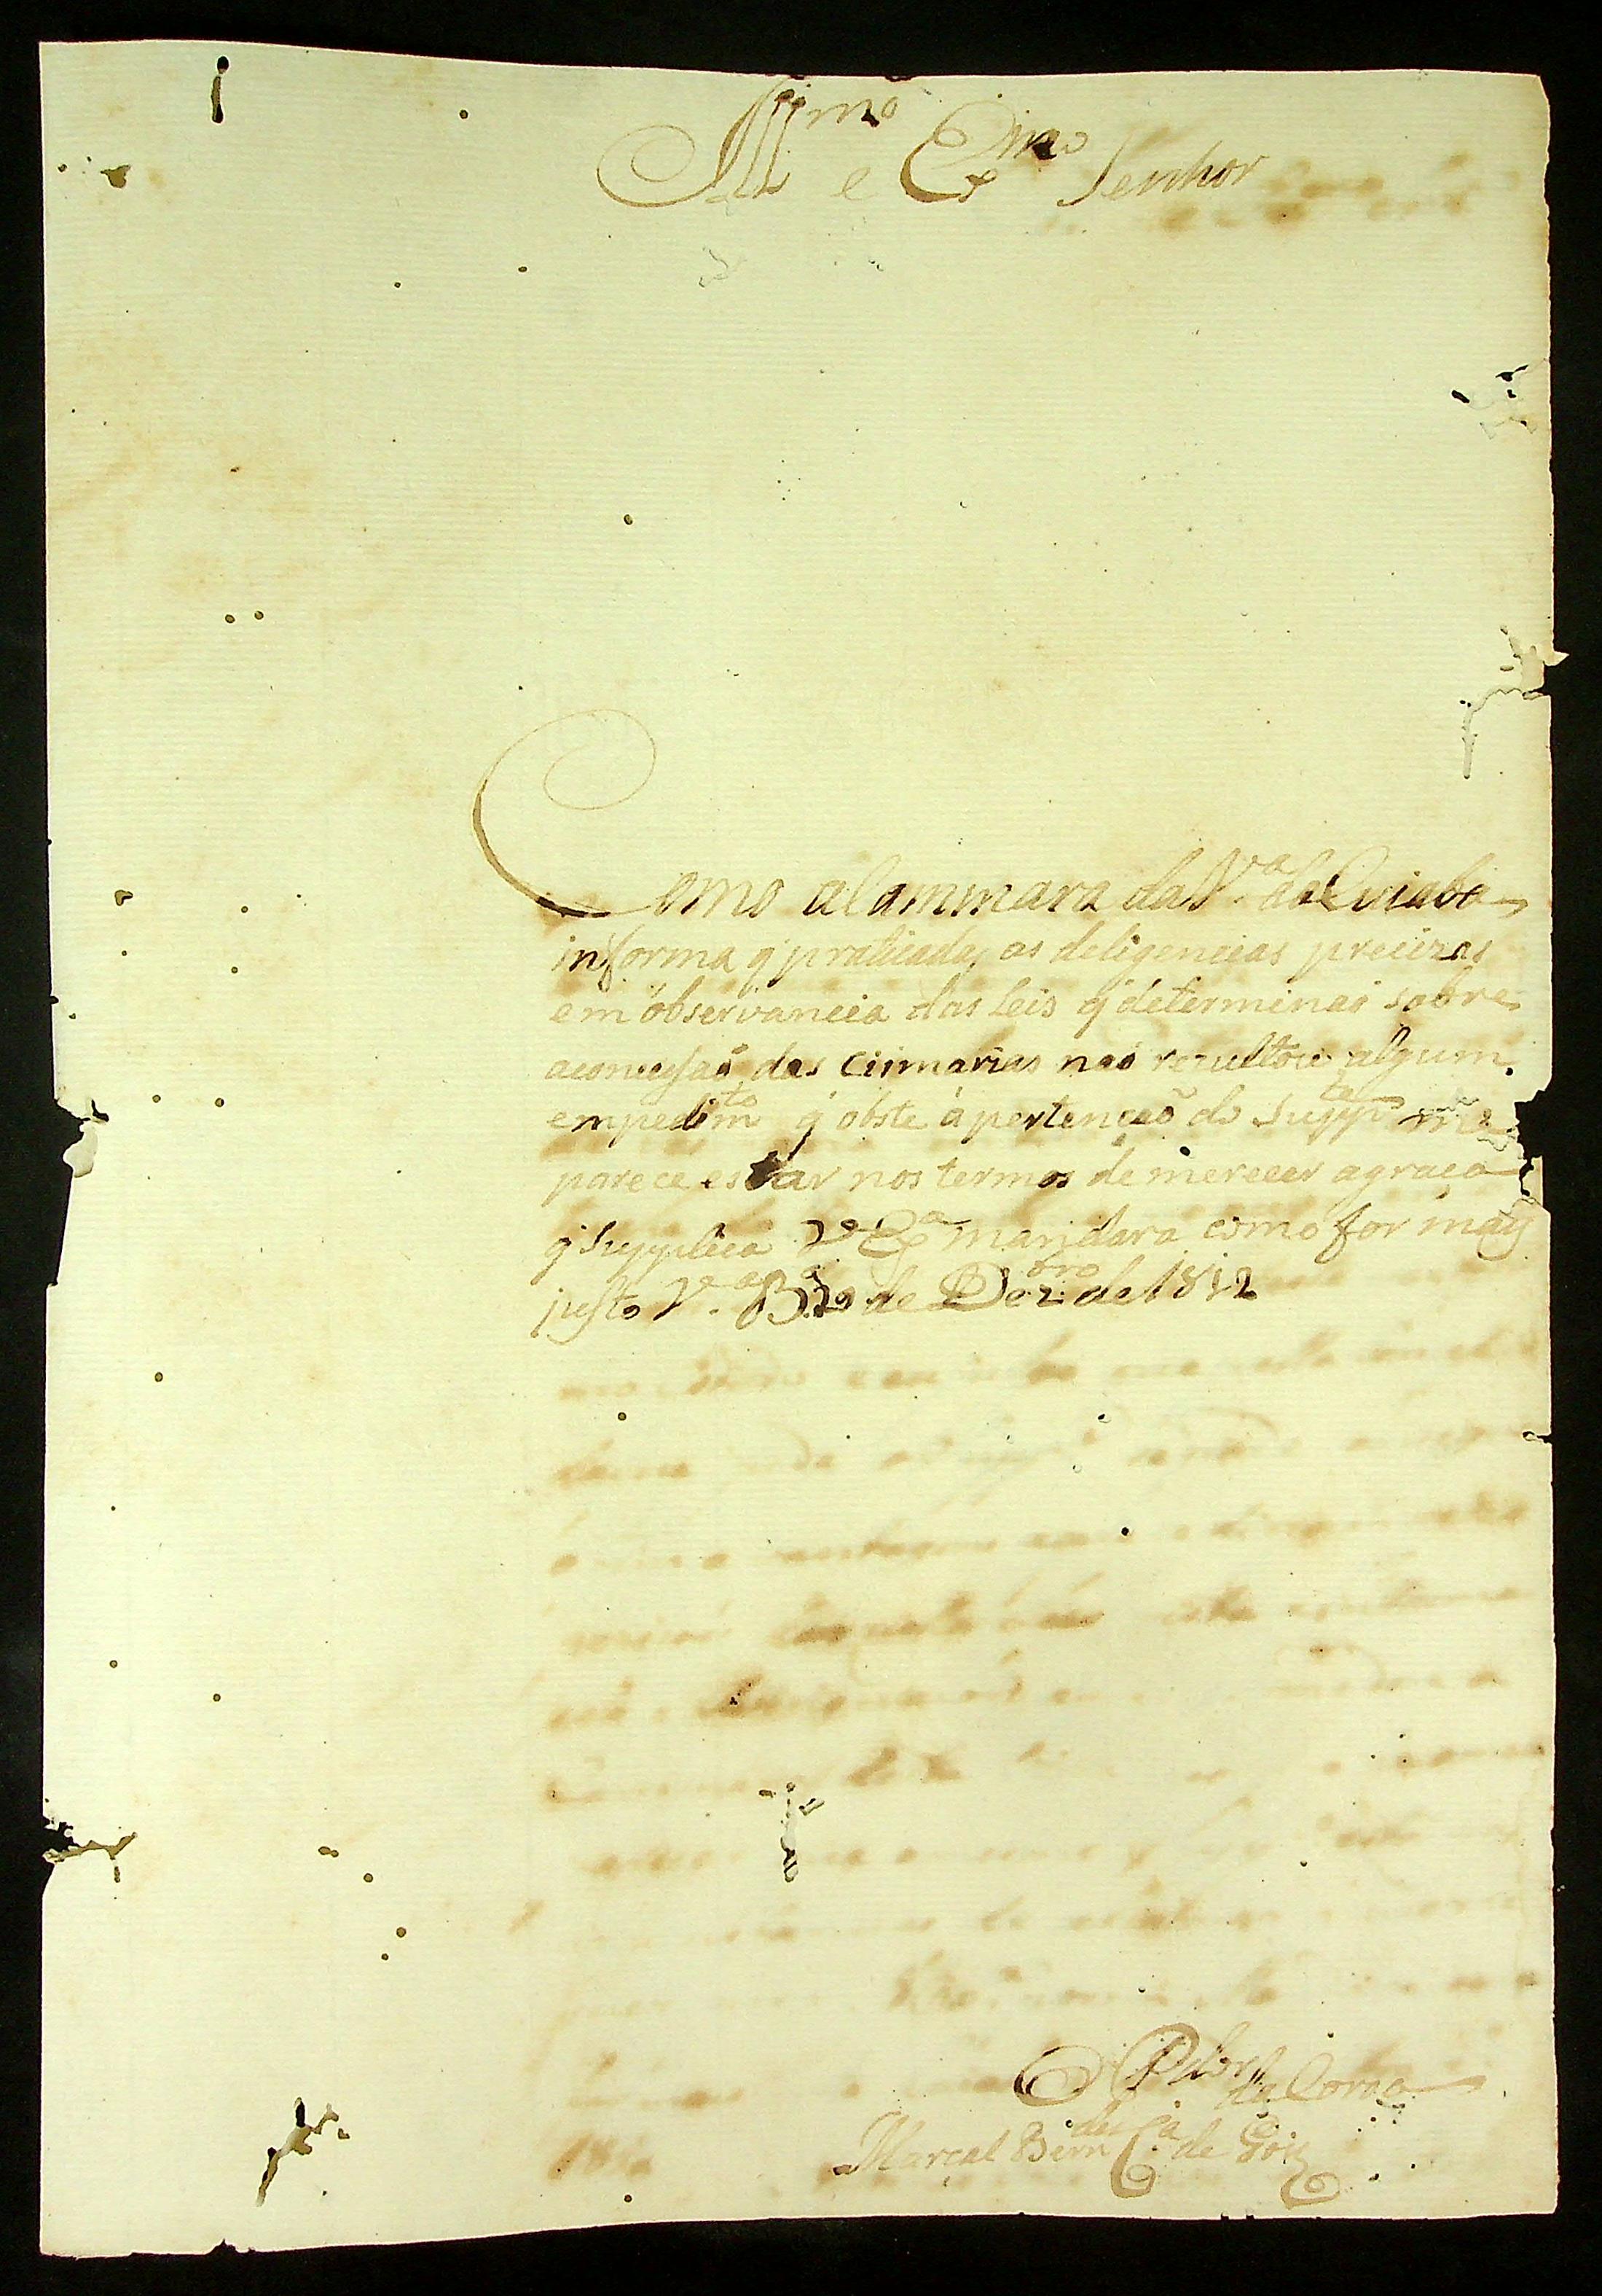 Illmo e Exmo Senhor
Como a Cammara da Va do Cuiaba
informa q' praticadas as deligencias precizas
em observancia das Leis q' determinaõ sobre
aconcesaõ das cismarias naõ rezultou algum
empedimto q' obste á pertençaõ do Suppte me
parece estar nos termos de merecer agraça
q' Supplica V. Exa mandara como for mais
justo Va Ba de Dezbro de 1812
O P.dor da Coroa
Marçal Berndes Ca de Goiz